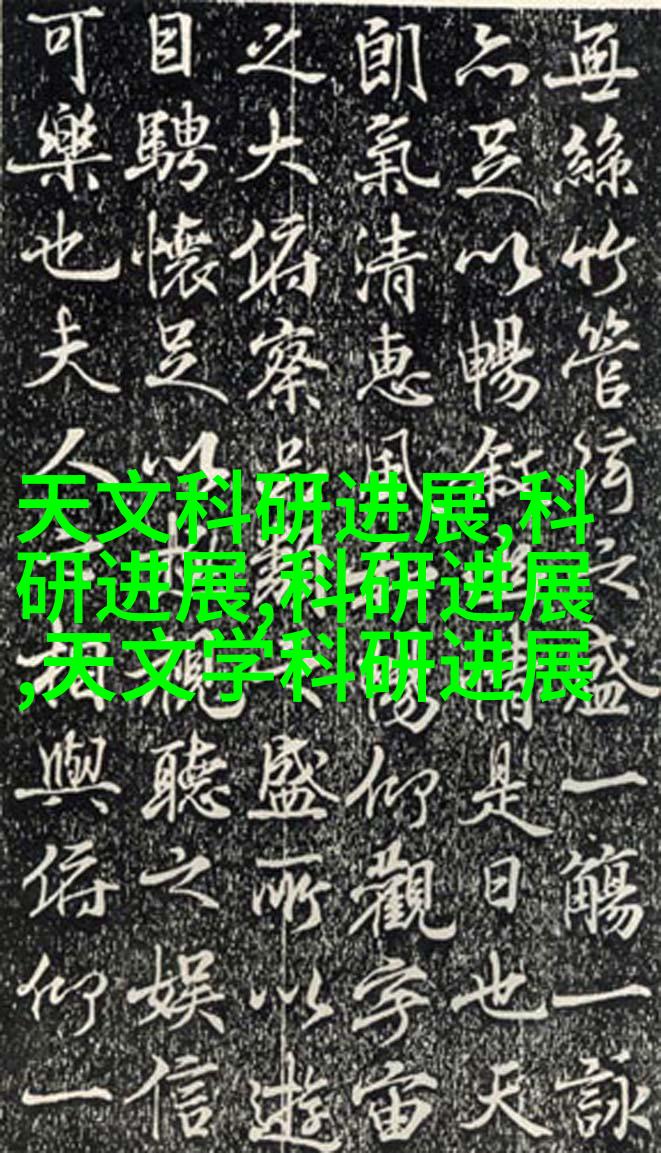 無絲竹管絃之盛一觴一詠
亦足以暢敘情是日也天
朗氣清惠風暢仰觀宇宙
之大俯察品類盛所以遊
目騁懷足以視聽之娛信
可樂也夫人相與俯仰一
天文科研进展,科
研进展,科研进展
,天文学科研进展